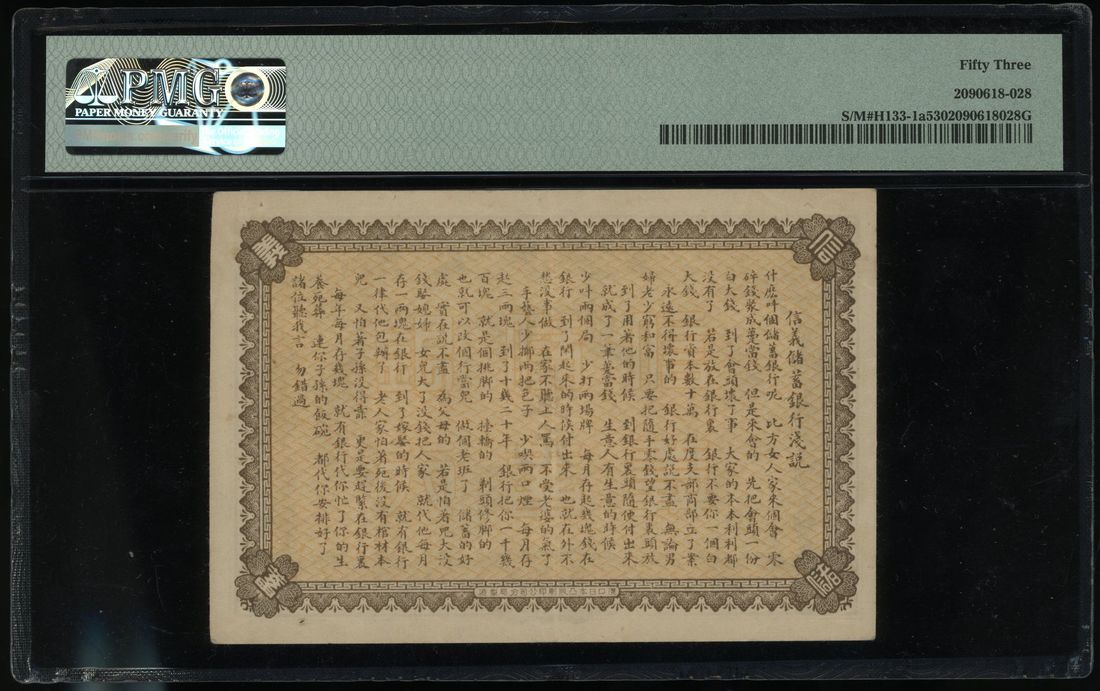 PMG
PAPER MONEY GUARANTY
Fifty Three
2090618-028
S/M#H133-1a5302090618028G
信
義
儲
信義儲蓄銀行淺説
什庅呌個儲蓄銀行呢 比方女人家來個會 零
碎錢聚成躉當錢 但是來會的 先把會頭一份
白大錢 到了會頭壞了事 大家的本本利利都
没有了 若是放在銀行裏 銀行不要你一個白
大錢 銀行資本數十萬 在度支部商部立了案
永遠不得壞事的 銀行好處説不盡 無論男
婦老少窮和富 只要把隨手零錢望銀行裏頭放
到了用着他的時候 到銀行裏頭隨便付出來
就成了一筆躉當錢 生意人有生意的時候
少呌兩個局 少打兩場牌 每月存起幾塊錢在
銀行 到了閒起來的時候付出來 也就在外不
愁没事做 在家不聽上人罵 不受老婆的氣了
手藝人少擲兩把色子 少喫兩口煙 每月存
起三兩塊 到了十幾二十年 銀行把你一千幾
百塊 就是個挑脚的 擡轎的 剃頭修脚的
也就可以改個行當兒 做個老班了 儲蓄的好
處 實在説不盡 為父母的 若是怕着兒大没
錢娶媳婦 女兒大了没錢把人家 就代他每月
存一兩塊在銀行 到了嫁娶的時候 就有銀行
一律代他包辦了 老人家怕着死後没有棺材本
兒 又怕着子孫没得靠 更是要趕緊在銀行裏
每年每月存幾塊 就有銀行代你忙了你的生
養死葬 連你子孫的飯碗 都代你安排好了
諸位聽我言 勿錯過